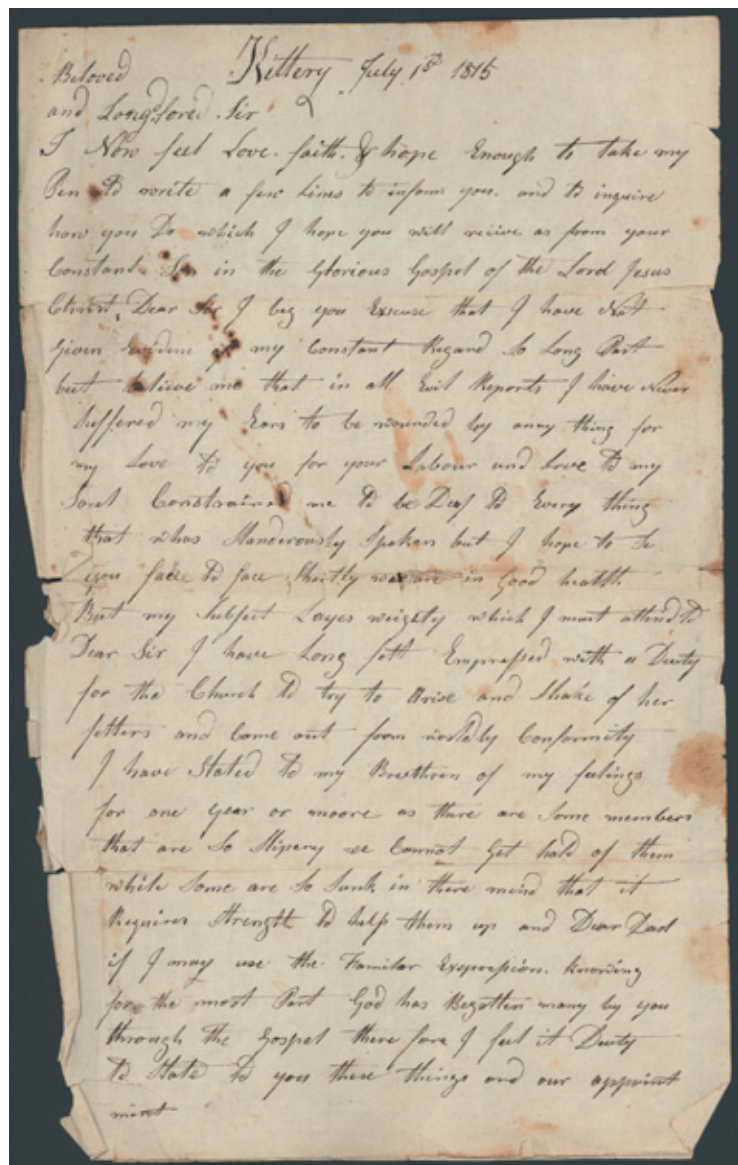 Kittery July 1st 1815
Beloved
and Longed for Sir
I Now feel Love. faith. & hope Enough to take my
Pen to write a few Lines to inform you. and to inquire
how you Do which I hope you will receive as from your
Constant Son in the Glorious Gospel of the Lord Jesus
Christ, Dear Sir I beg you Excuse that I have Not
Given Evidence of my Constant Regard So Long Past
but believe me that in all Evil Reports I have Never
Suffered my Ears to be wounded by anny thing for
my Love to you for your Labour and Love to my
Soul Constrained me to be Deaf to Every thing
that whas Slanderously Spoken but I hope to Se
you face to face Shortly we are in Good health
But my Subject Layes weighty which I must attend to
Dear Sir I have Long felt Empressed with a Duety
for the Church to try to Arise and Shake of her
fetters and Come out from worldly Conformity
I have Stated to my Breethren of my feelings
for one year or moore as there are Some members
that are So Slipery we Cannot Get hold of them
while Some are So Sunk in there mind that it
Requires Strength to help them up and Dear Dad
if I may use the Familar Expression. knowing
for the most Part God has Begotten many by you
through the Gospel there fore I feel it Duety
to State to you these things and our appoint
ment